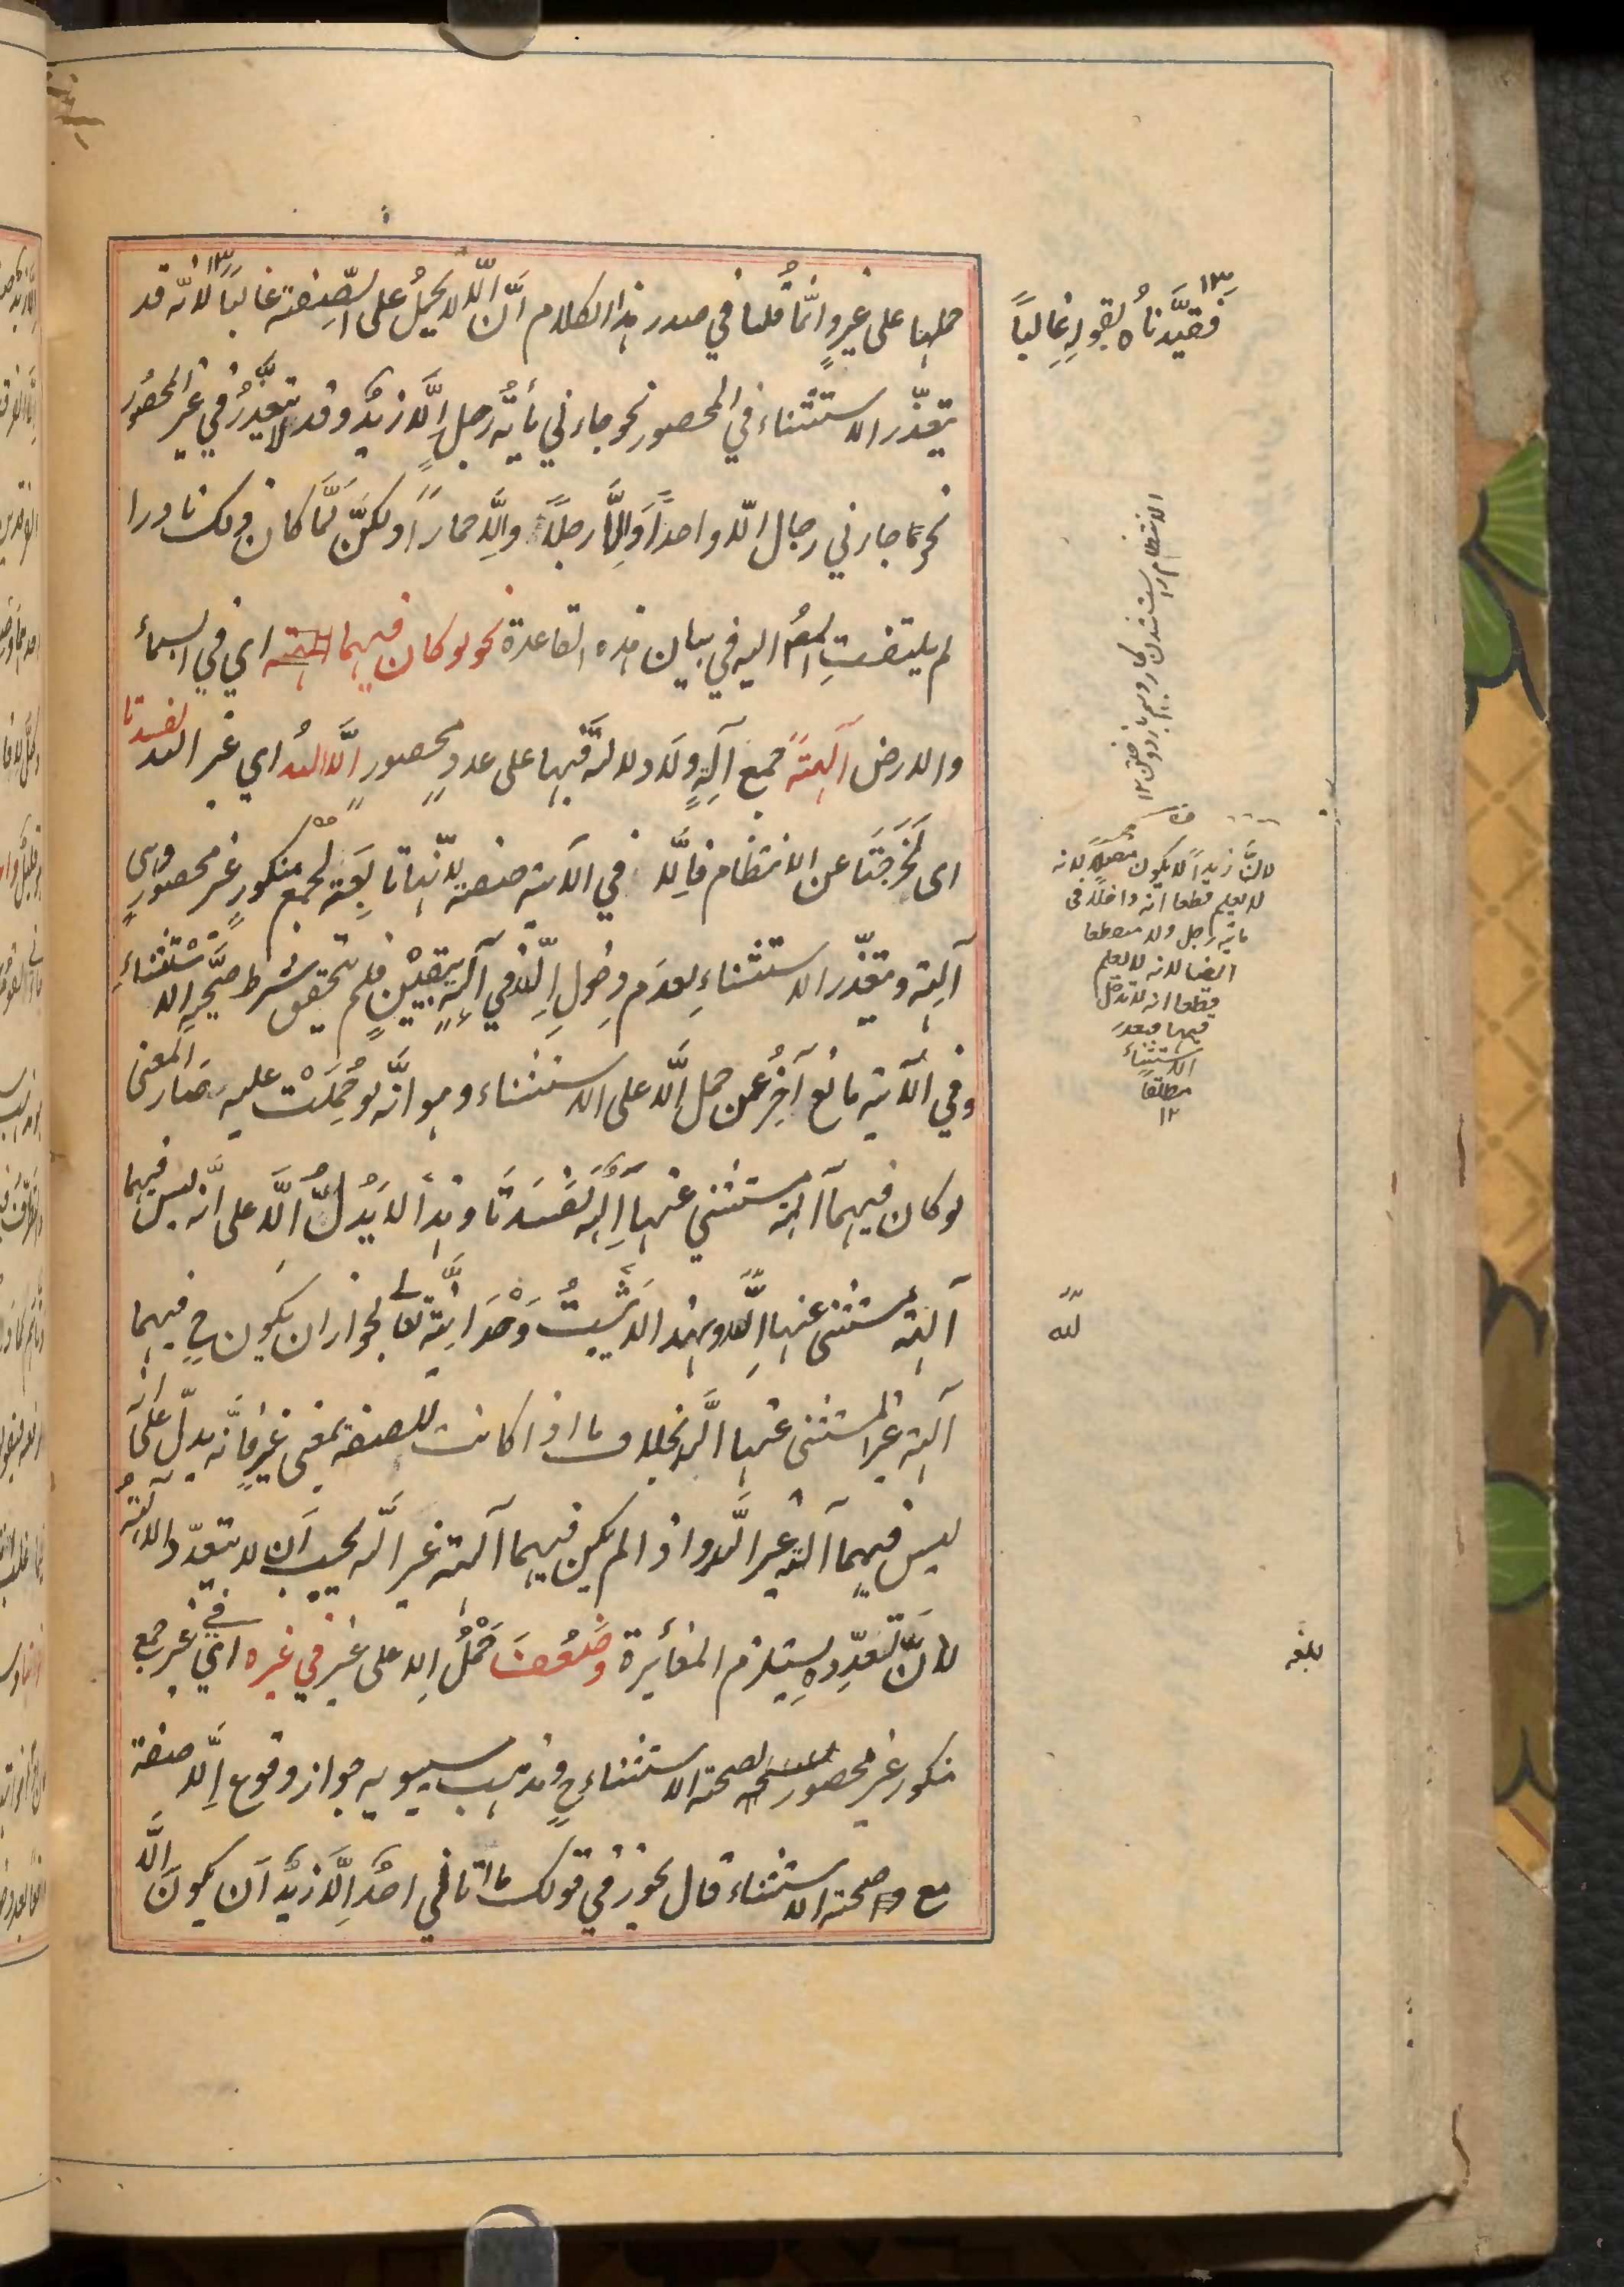 حملها على غيرٍ وانّما قُلنا في صدر هذا الكلام انّ الّا لا يُحمَلُ على الصّفة غالباً لانّه قد
يتعذّر الاستثناء في المحصور نحو جاءني مأيةُ رجلٍ اِلَّا زيدٌ وقد لا يتعذَّرُ في غير المحصُور
نحو ما جاءني رجال الّا واحداً وَاِلَّا رجلاً والّا حماراً ولكنَّ لمَّا كان ذلك نادرا
لم يلتفتِ المصُ اليه في بيان هذه القاعدة نحو لو كان فيهما اي في السماء
والارض آلهةً جمع آلهٍ ولا دلالةَ فيها على عددٍ محصورٍ اِلّا اللهُ اي غير الله لفسدتا
اى لَخَرَجَتَا عن الانتظام فاِلَّا في الآية صفة لانّها تابِعَة لجمعٍ منكورٍ غير محصورٍ وهى
آلهة ويتعذّر الاستثناءِ لعدَم دخُولِ اللهِ في آلهةٍ بيَقِيْنٍ فلم يتحقق شرط صحَّة الاستثناءِ
وفي الآية مانع آخرُ عن حمل اِلَّا على الاستثناء وهو انَّه لو حُمِلَتْ عليه صَار المعنى
لو كان فيهما آلهة مستثنى عنها اَللهُ لَفَسَدَتَا وهذا لا يَدُلُّ اِلَّا على انَّه ليس فيهما
آلهة مستثنى عنها اللهُ وبهذا لا يَثبِتُ وَحْدَانِيَّة تعالى لجواز ان يكون ح فيهما
آلهة غير المستثنى عنها اللهُ بخلاف ما اذا كانت للصفة بمعنى غيرٍ فانَّه يدلّ على انّه
ليس فيهما آلهة غير الله واذا لم يكن فيهما آلهة غير الله يجب اَن لا يتعدّد الآلهةُ
لانَّ تعدّدهِ يستلزم المغائرة وضَعُفَ حَمْلُ اِلا على غيرٍ في غيره اي في غير جمع
منكور غير محصور لصحة الاستثناء ح ومذهب سيبويه جواز وقوع اِلَّا صفة
مع صحة الاستثناء قال يجوز في قولك ما اتاني احدٌ اِلَّا زيدٌ اَن يكونَ الَّا
فقيّدناهُ بقولهِ غالباً
لانَّ زيداً لا يكون متصلا لانه
لا يعلم قطعا انه داخلا فى
مائة رجل ولا منقطعا
ايضا لانه لا يعلم
قطعا انه لا يدخل
فيها فيعذر
الاستثناء
مطلقا
١٢
للّه